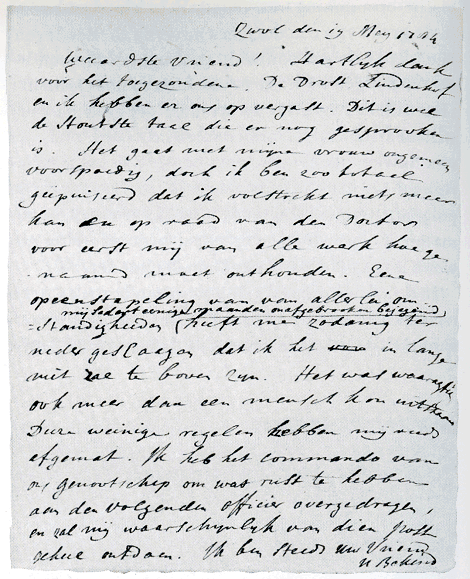 Zwol den 19 May 1784
Waardste Vriend! Hartlyk dank
voor het toegezondene. De Drost Lindenhof
en ik hebben er ons op vergast. Dit is wel
de stoutste taal die er nog gesprooken
is. Het gaat met mijne vrouw ongemeen
voorspoedig, doch ik ben zoo totaal
geëpuiseerd dat ik volstrekt niets meer
kan en op raad van den Doctor
voor eerst mij van alle werk hoe ge-
naamd moet onthouden. Eene
opeenstapeling van van allerlei om
mij sedert eenige maanden onafgebrooken bejegend
-standigheden heeft me zodanig ter
neder geslaagen dat ik het in lange
niet zal te boven zyn. Het was waaragtig
ook meer dan een mensch kon uitstaan
Deze weinige regelen hebben mij reeds
afgemat. Ik heb het commando van
ons genootschap om wat rust te hebben
aan den volgenden officier overgedragen,
en zal mij waarschynlyk van dien post
geheel ontdoen. Ik ben steeds uw Vriend